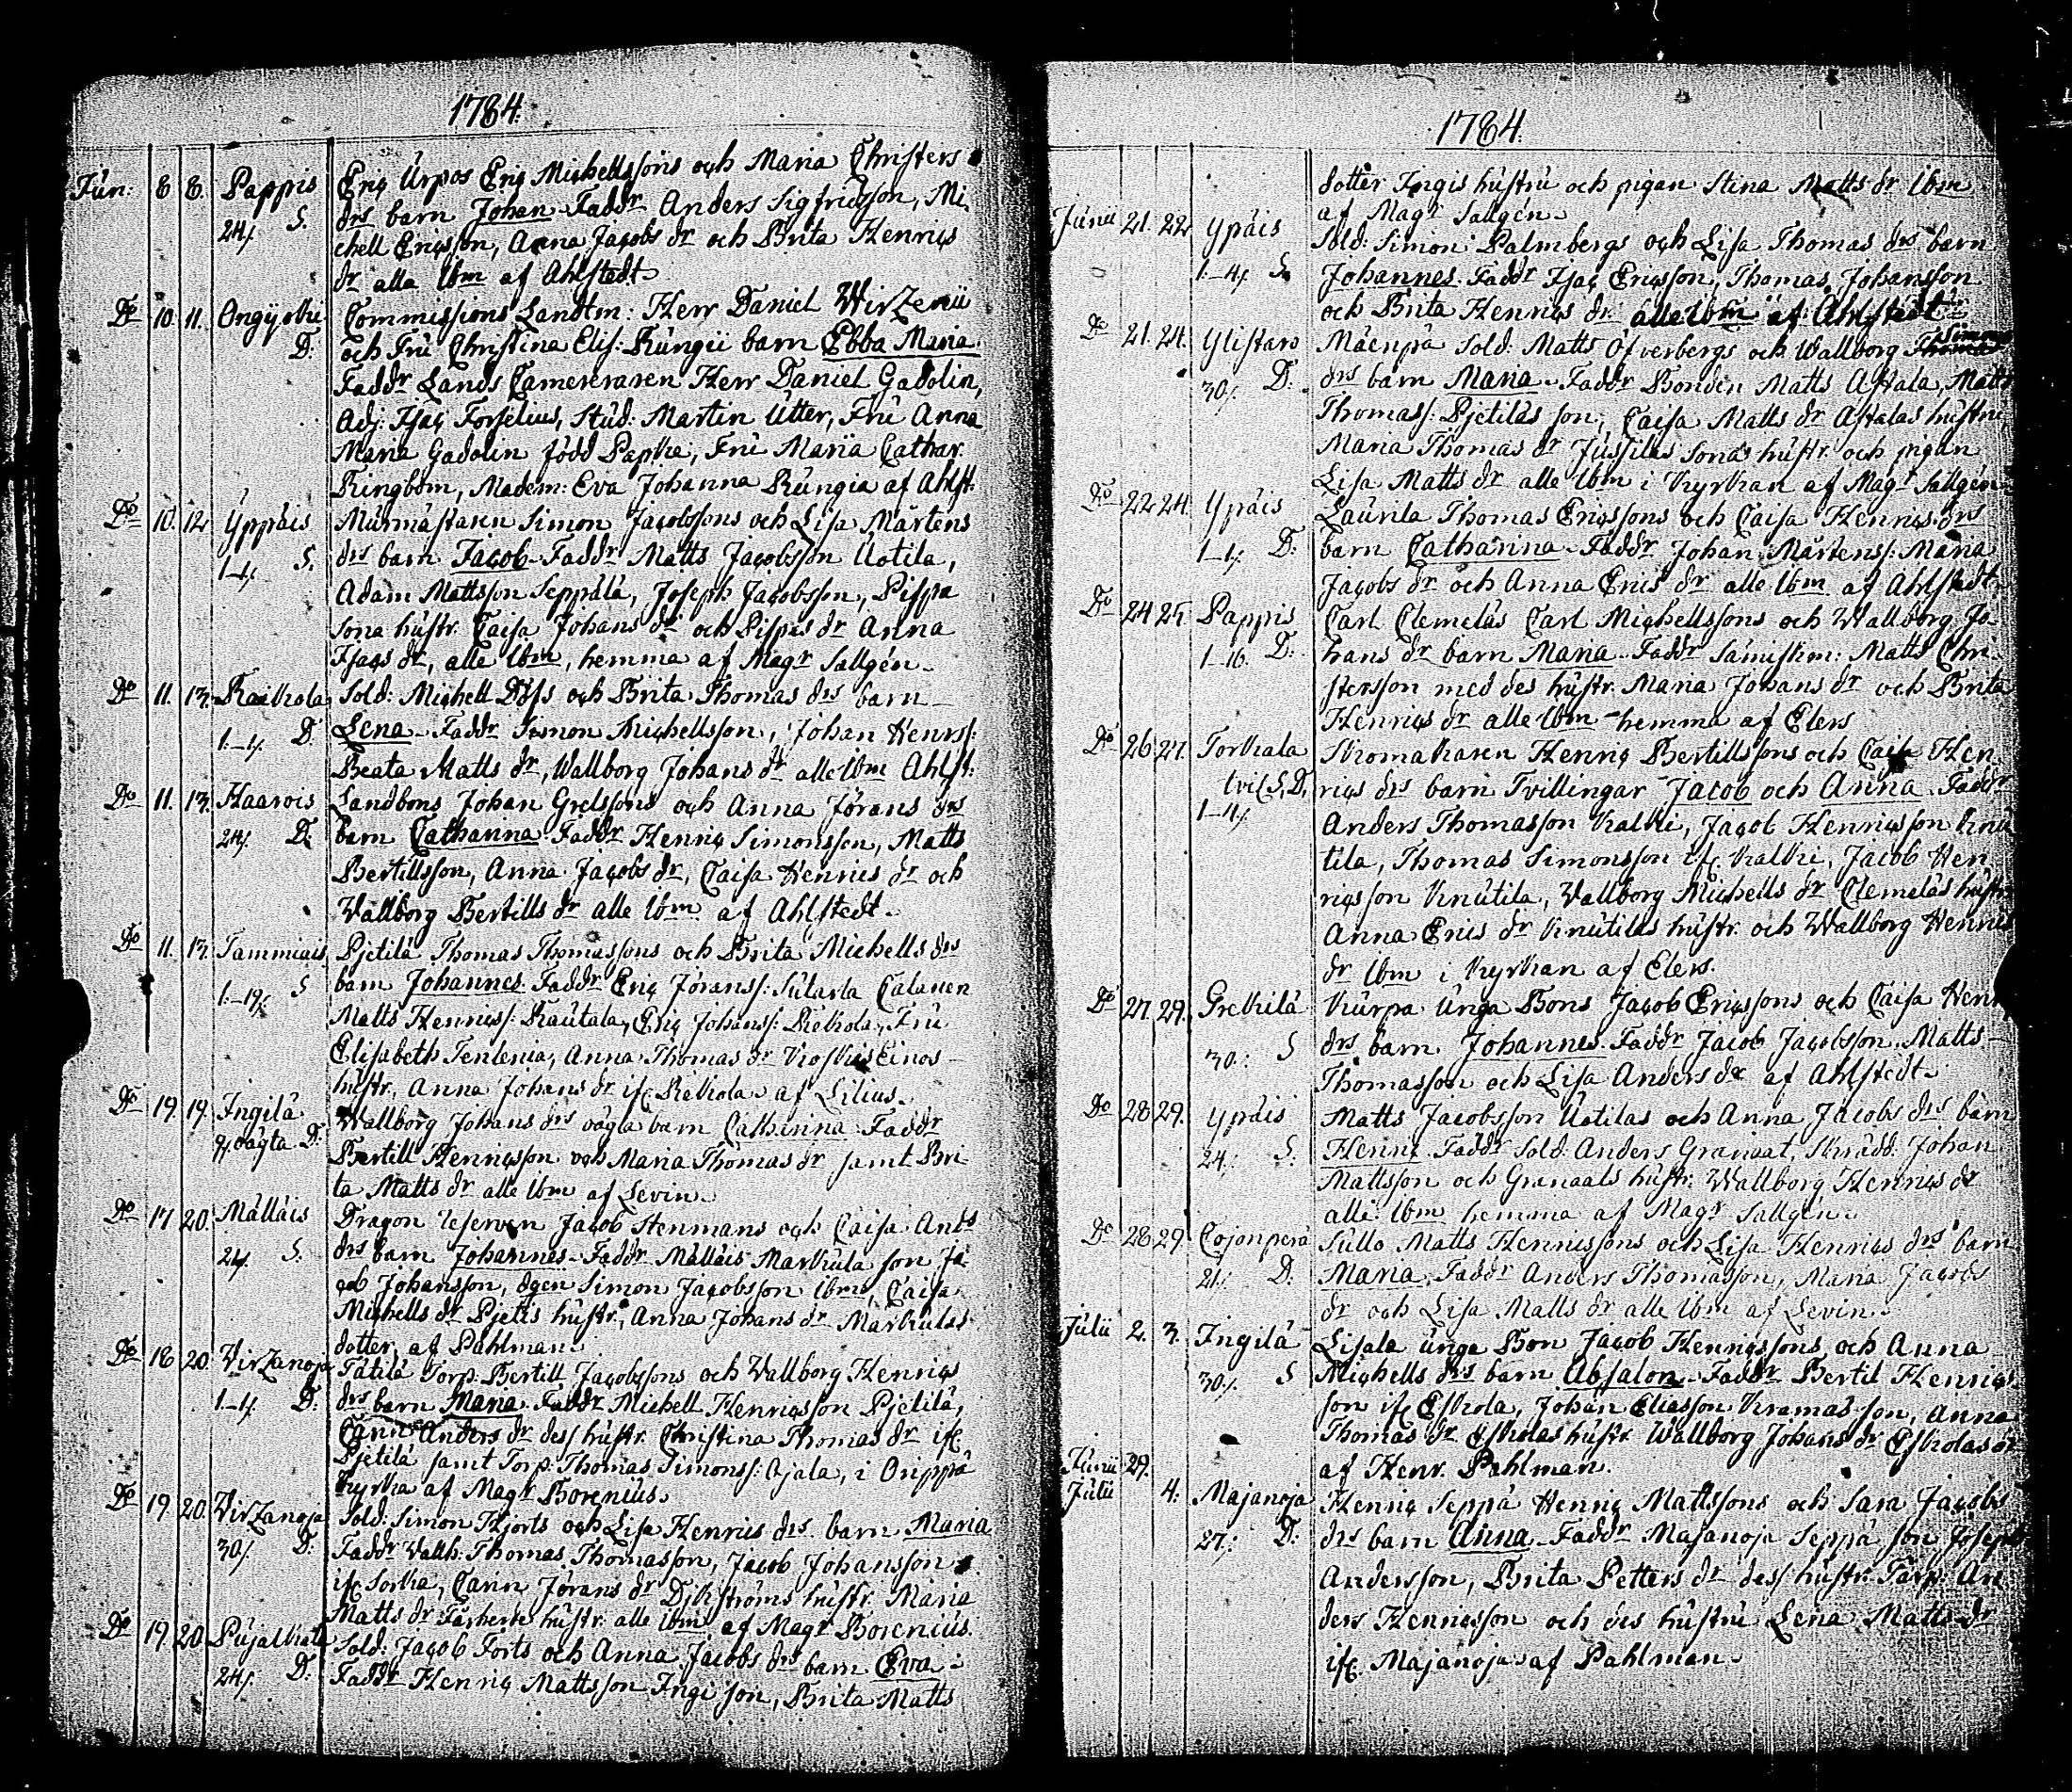 1784.
Jun: 8 8. Pappis Eriç Urpos Eriç Michellssons och Maria Christers
24/. S. drs barn Johan Faddr Anders Sigfridsson, Mi
chell Ericsson, Anna Jacobs dr och Brita Henrics
dr alla ibm af Ahlstedt
Do 10. 11. Ongyoki Commissions Landtm: Herr Daniel Wirzenii
D. och Fru Christina Elis: Rungii barn Ebba Maria.
Faddr Lands Camereraren Herr Daniel Gadolin,
Adj: Isac Forselius, Stud: Martin Utter, Fru Anna
Maria Gadolin född Papke, Fru Maria Cathar.
Ringbom, Madem: Eva Johanna Rungia af Ahlst:
Do 10. 12 Yppäis Murmästaren Simon Jacobssons och Lisa Mårtens
1-4/. S. drs barn Jacob Faddr Matts Jacobsson Uotila,
Adam Mattsson Seppälä, Joseph Jacobsson, Pispa
sona hustr. Caisa Johans dr och Pispas dr Anna
Isacs dr, alle ibm, hemma af Magr Sallgén
Do 11. 13. Raikkola Sold: Michell Döfs och Brita Thomas drs barn
1-4/. D. Lena Faddr Simon Michellsson, Johan Henrs:
Beata Matts dr, Wallborg Johans dr alle ibm Ahlst:
Do 11. 13. Haarois Landbons Johan Grelssons och Anna Jörans drs
24/. D. barn Catharina Faddr Henriç Simonsson, Matts
Bertillsson, Anna Jacobs dr, Caisa Henrics dr och
Wallborg Bertills dr alle ibm af Ahlstedt.
Do 11. 13. Tammiais Pjetilä Thomas Thomassons och Brita Michells drs
1-19/. S barn Johannes Faddr Eriç Jöranss: Sutarla Calanen
Matts Henrics: Rautala, Eriç Johanss: Riekola, Fru
Elisabeth Tenlenia, Anna Thomas dr Koskis Einos
hustr., Anna Johans dr ifr. Riekola af Lilius.
Do 19. 19. Ingilä Wallborg Johans drs oägta barn Catharina Faddr
oägta D. Bertill Henricsson och Maria Thomas dr samt Bri
ta Matts dr alle ibm af Levin.
Do 17 20. Mälläis Dragon Jacob Stenmans och Caisa Ands
24/. S. drs barn Johannes Faddr Mälläis Markula son Ja
cob Johansson, dgen Simon Jacobsson ibm, Caisa
Michells dr Pjetis hustr., Anna Johans dr Markulas
dotter, af Pahlman.
Do 18 20. Virzanoja Tätilä Torp. Bertill Jacobssons och Wallborg Henrics
1-4/. D. drs barn Maria Faddr Michell Henricsson Pjetilä,
Carin Anders dr dess hustr. Christina Thomas dr ifr.
Pjetilä samt Torp: Thomas Simonss: Ojala, i Orippä
kyrka af Magr Borenius.
Do 19. 20. Virzanoja Sold: Simon Hjorts och Lisa Henrics drs barn Maria
30/. D. Faddr Wallh: Thomas Thomasson, Jacob Johansson
ifr Sorka, Carin Jörans dr Djkströms hustr. Maria
Matts dr hustr: alle ibm af Magr Borenius.
Do 19. 20 Pujalkala Sold: Jacob Forts och Anna Jacobs drs barn Eva
24/. D. Faddr Henriç Mattsson Ingi son, Brita Matts
1784.
dotter Ingis hustru och pigan Stina Matts dr ibm
af Magr Sallgén
Junii 21. 22 Ypäis Sold: Simon Palmbergs och Lisa Thomas drs barn
1-4/. S. Johannes Faddr Isac Ericsson, Thomas Johansson
och Brita Henrics dr alle ibm af Ahlstedt
Do 21. 24. Ylistaro Mäenpä Sold: Matts Öfverbergs och Wallborg Simons
30/. D. drs barn Maria Faddr Bonden Matts Astala, Matts
Thomass: Pjetiläs son, Caisa Matts dr Astalas hustru,
Maria Thomas dr Jussilas sonas hustr. och pigan
Lisa Matts dr alle ibm i kyrkan af Magr Sallgén
Do 22 24. Ypäis Laurila Thomas Ericssons och Caisa Henrics drs
1-4/. D: barn Catharina Faddr Johan Mårtenss: Maria
Jacobs dr och Anna Erics dr alle ibm af Ahlstedt.
Do 24 25. Pappis Carl Clemeläs Carl Michellssons och Wallborg Jo
1-16. D: hans dr barn Maria Faddr Sämiskm: Matts Chri
stersson med des hustr. Maria Johans dr och Brita
Henrics dr alle ibm hemma af Elers
Do 26 27. Torkala Skomakaren Henriç Bertillssons och Caisa Hen
tvil S, D. rics drs barn Tvillingar Jacob och Anna Faddr
1-4/. Anders Thomasson Kalki, Jacob Henricsson Knu
tila, Thomas Simonsson ifr. Kalki, Jacob Hen
ricsson Knutila, Wallborg Michells dr Clemeläs hustr
Anna Erics dr Knutilas hustr. och Wallborg Henrics
dr ibm i kyrkan af Elers.
Do 27. 29. Greikilä Kurpa Unga Bons Jacob Ericssons och Caisa Hen
30/. S drs barn Johannes Faddr Jacob Jacobsson Matts
Thomasson och Lisa Anders dr af Ahlstedt.
Do 28 29. Ypäis Matts Jacobsson Uotilas och Anna Jacobs drs barn
24/. S. Henric Faddr Sold: Anders Granaat, Skrädd: Johan
Mattsson och Granaats hustr. Wallborg Henrics dr
alle ibm hemma af Magr Sallgén.
Do 28 29 Cojonperä Sullo Matts Henricssons och Lisa Henrics drs barn
21/. D. Maria Faddr Anders Thomasson, Maria Jacobs
dr och Lisa Matts dr alle ibm af Levin.
Julii 2. 3. Ingilä Lisala unga Bon Jacob Henricssons och Anna
30/. S Michells drs barn Absalon Faddr Bertil Henrics
son ifr Eskola, Johan Eliasson Kramas son, Anna
Thomas dr Eskolas hustr. Wallborg Johans dr Eskolas
af Henr. Pahlman.
Junii 29.
Julii 4. Majanoja Henriç Seppä Henriç Mattssons och Sara Jacobs
27/. D. drs barn Anna Faddr Majanoja Seppä son Joseph
Andersson, Brita Petters dr dess hustr. Torp: An
ders Henricsson och des hustru Lena Matts dr
ifr. Majanoja af Pahlman.